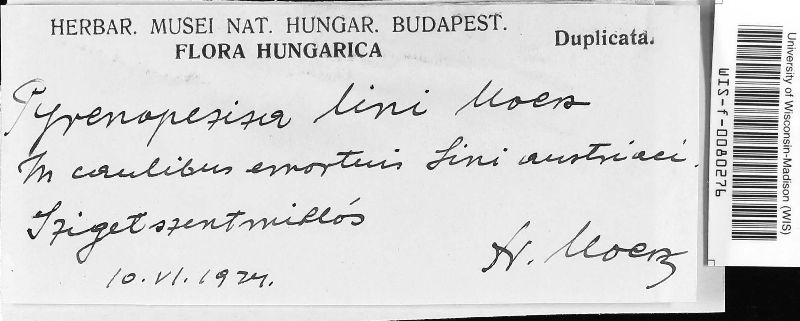 HERBAR. MUSEI NAT. HUNGAR. BUDAPEST.
FLORA HUNGARICA
Duplicata.
Pyrenopeziza lini Moesz
In caulibus emortuis Lini austriaci.
Szigetszentmiklós
10. VI. 1924.
Moesz
University of Wisconsin-Madison (WIS)
WIS-f-0080276